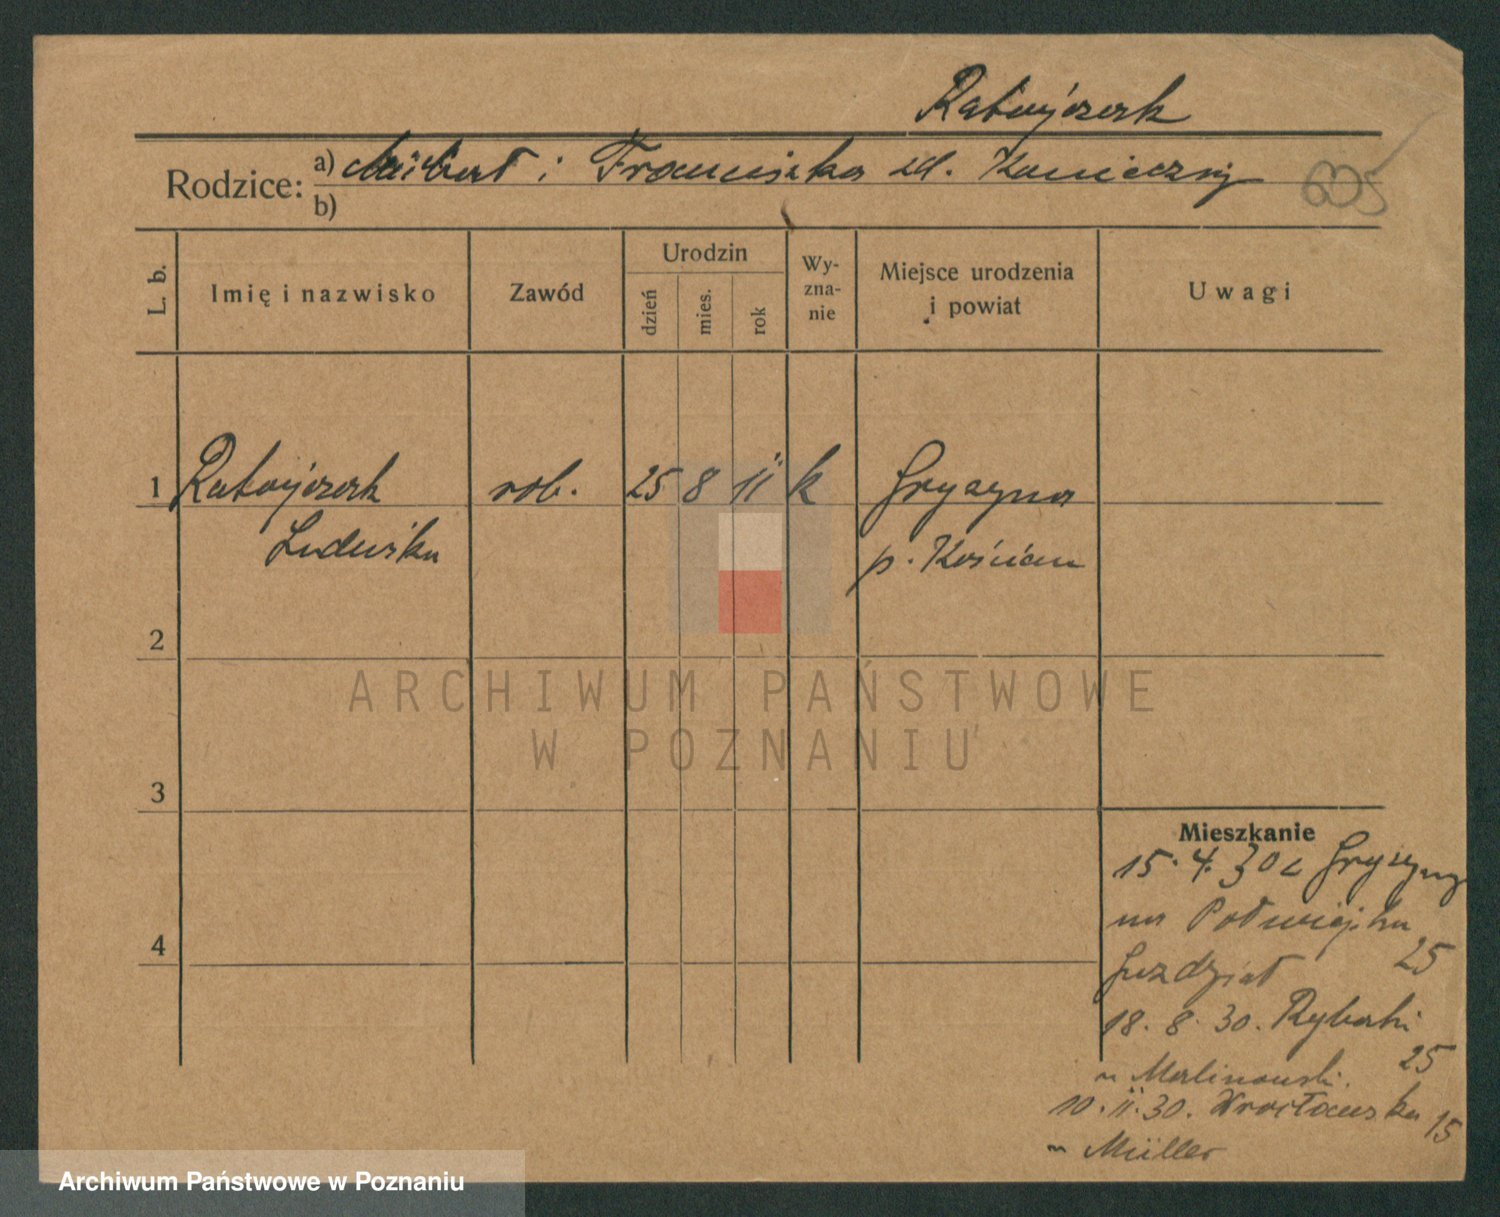 Ratwÿczak
Rodzice:
a) i Franciszka zd. Konieczny
b)
605
L. b.
Imię i nazwisko
Zawód
Urodzin
dzień
mies.
rok
Wy-
zna-
nie
Miejsce urodzenia
i powiat
Uwagi
1 Ratwÿczak rob. 25 8 11 k Gryzyna
Ludwika p. Kościan
2
3
4
ARCHIWUM PAŃSTWOWE
W POZNANIU
Mieszkanie
15.4.30 z Gryzyny
na Półwiejska
25
18.8.30. Rybaki
25
u Malinowski.
10.11.30. Wrocławska 15
u Müller
Archiwum Państwowe w Poznaniu